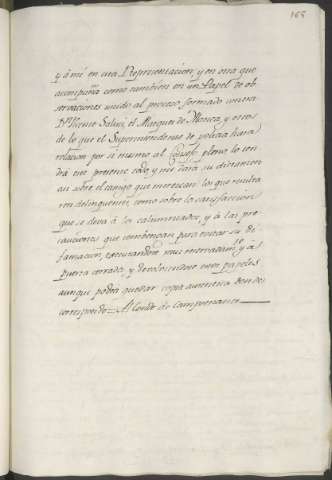 165
y á mí en una Representacion, y en otra que
acompaña como tambien en un Papel de ob-
servaciones unido al proceso formado contra
Dn. Vicente Saluci, el Marques de Manca, y otros
de lo que el Superintendente de policia hara
relacion por si mismo al Consejo pleno lo ten-
drá este presente todo y me dará su dictamen
asi sobre el castigo que merezcan los que resulta-
ren delinquentes, como sobre la satisfaccion
que se deva á los calumniados, y á las pre-
cauciones que combengan para evitar su di-
famacion, executandose todo reservadamte. y á
puerta cerrada, y devolviendose estos papeles
aunque podrá quedar copia autentica donde
corresponde = Al Conde de Campomanes